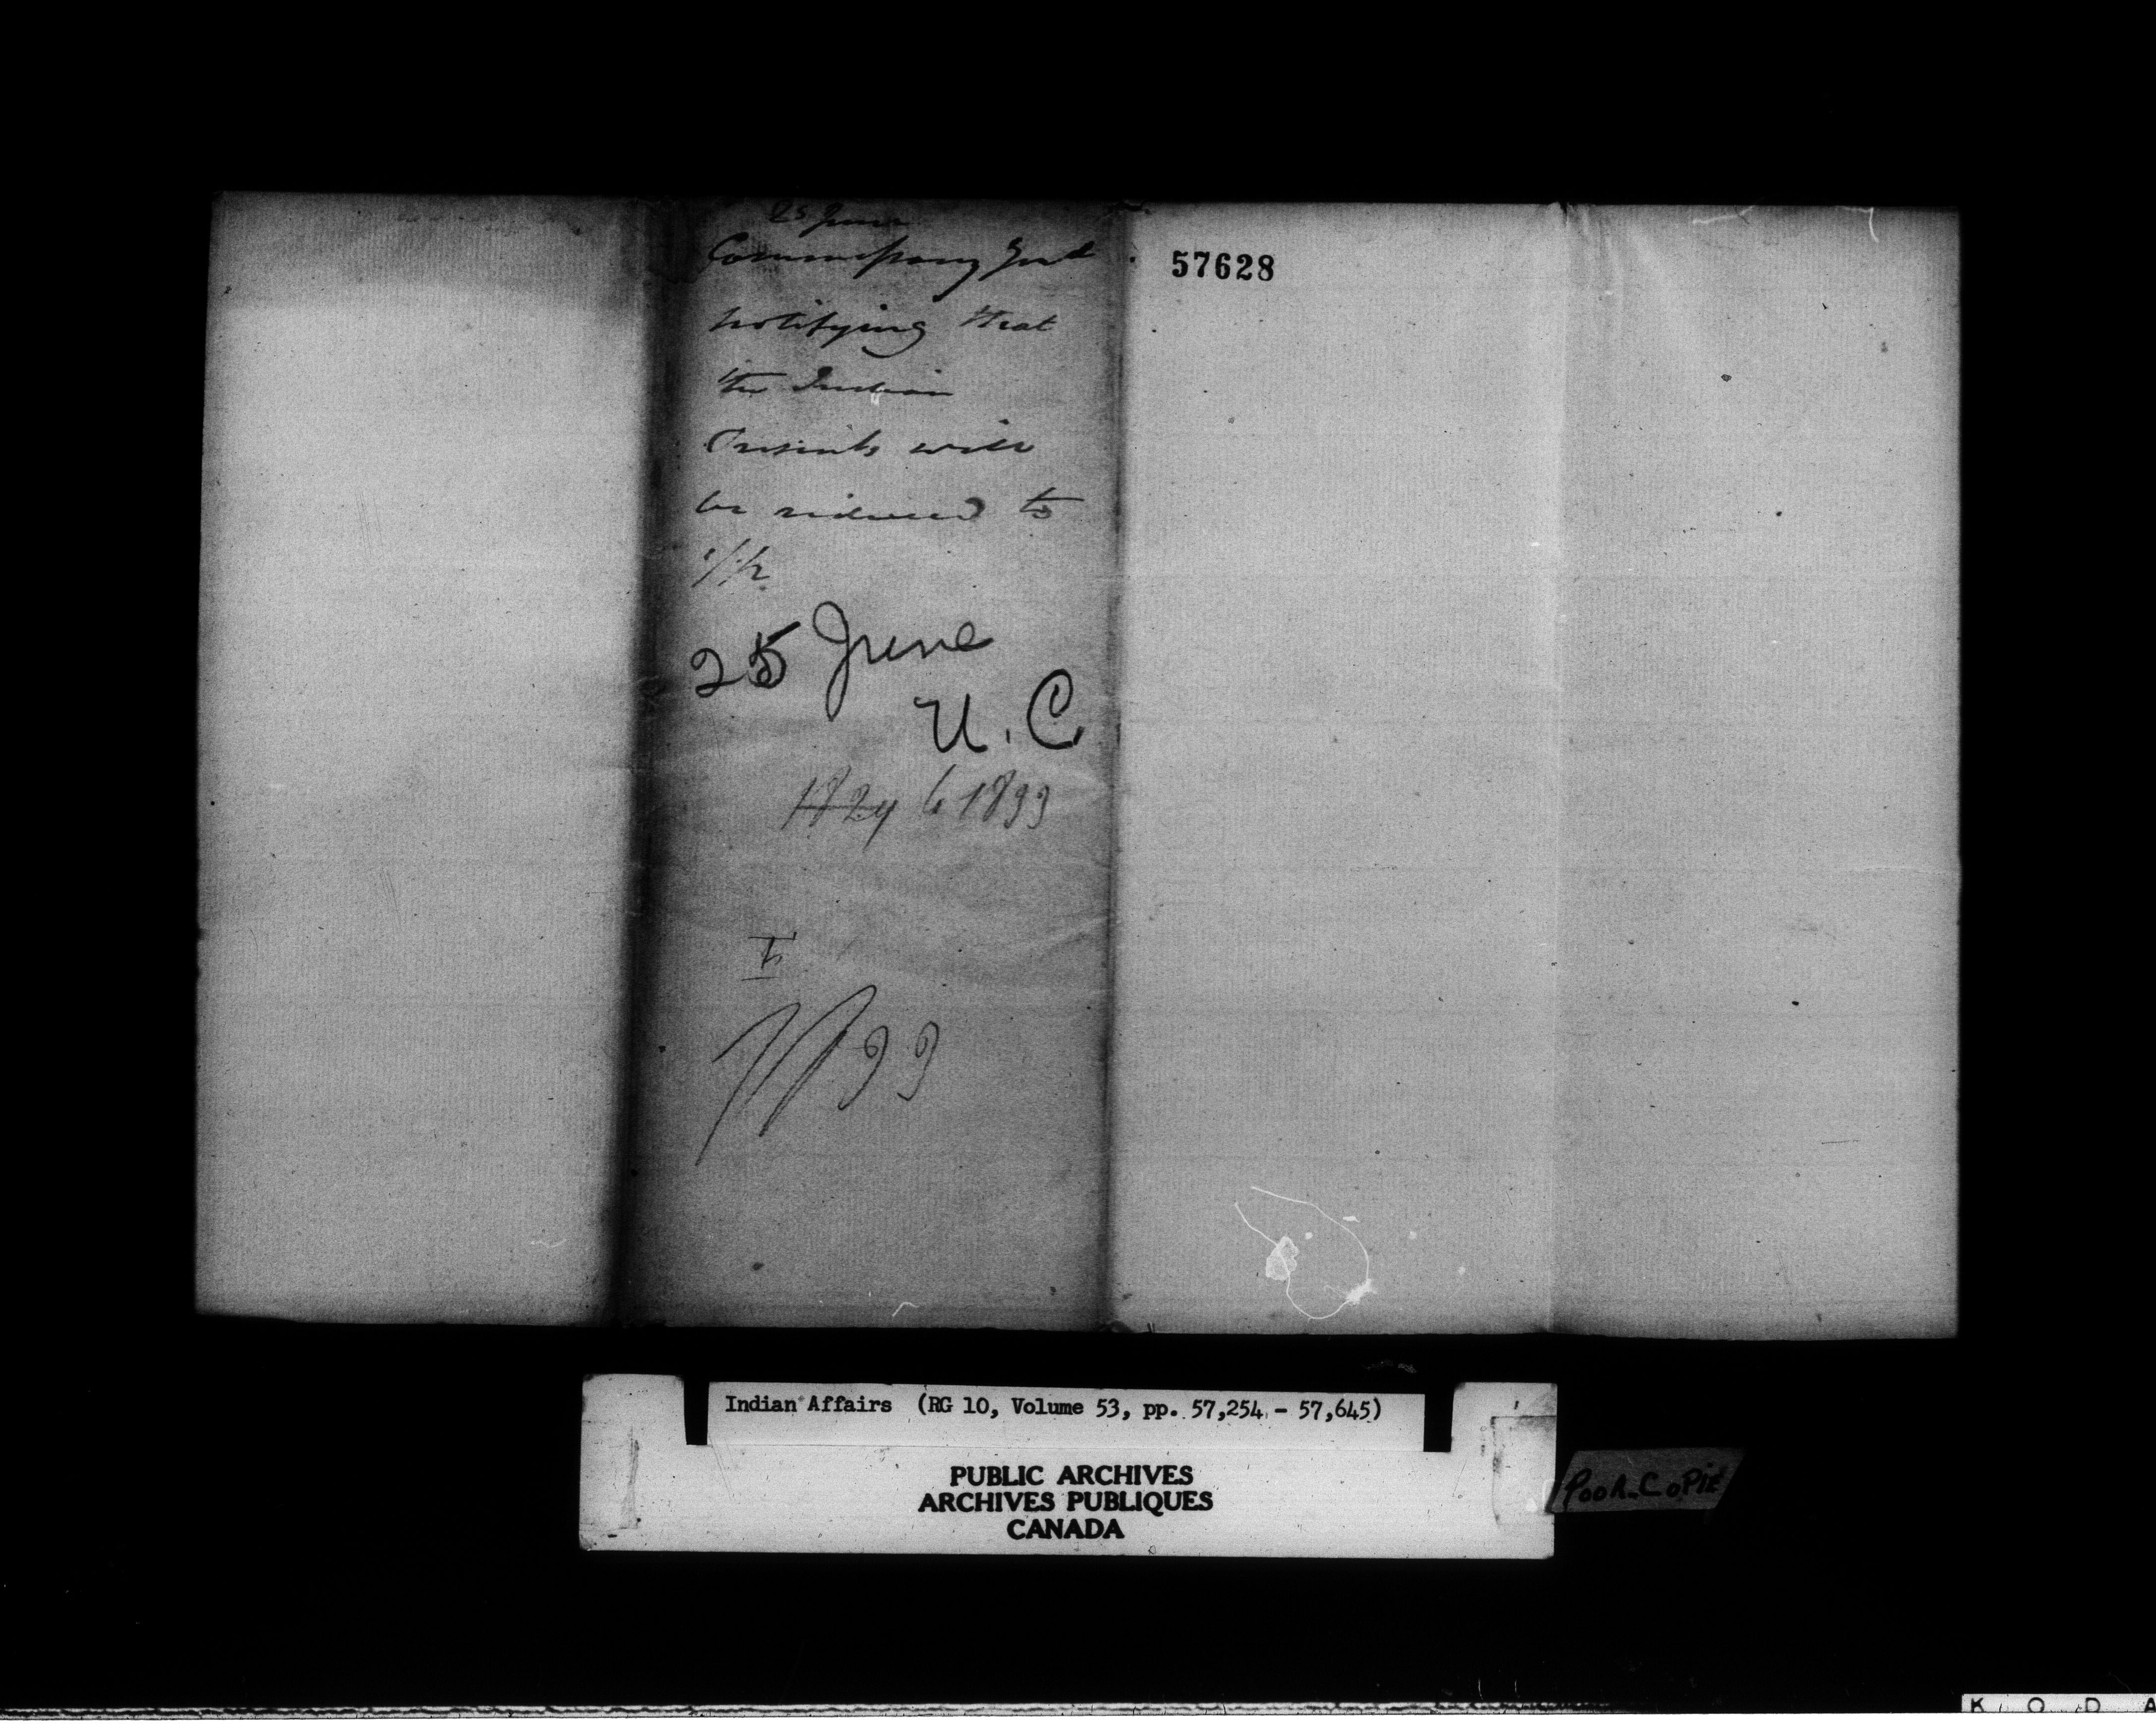 25 June
Commissary Genl
notifying that
the Indian
Presents will
be reduced to
1/2
25 June
U. C
57628
Indian Affairs (RG 10, Volume 53, pp. 57,254 - 57,645)
PUBLIC ARCHIVES
ARCHIVES PUBLIQUES
CANADA
POOR COPIE
K O D A